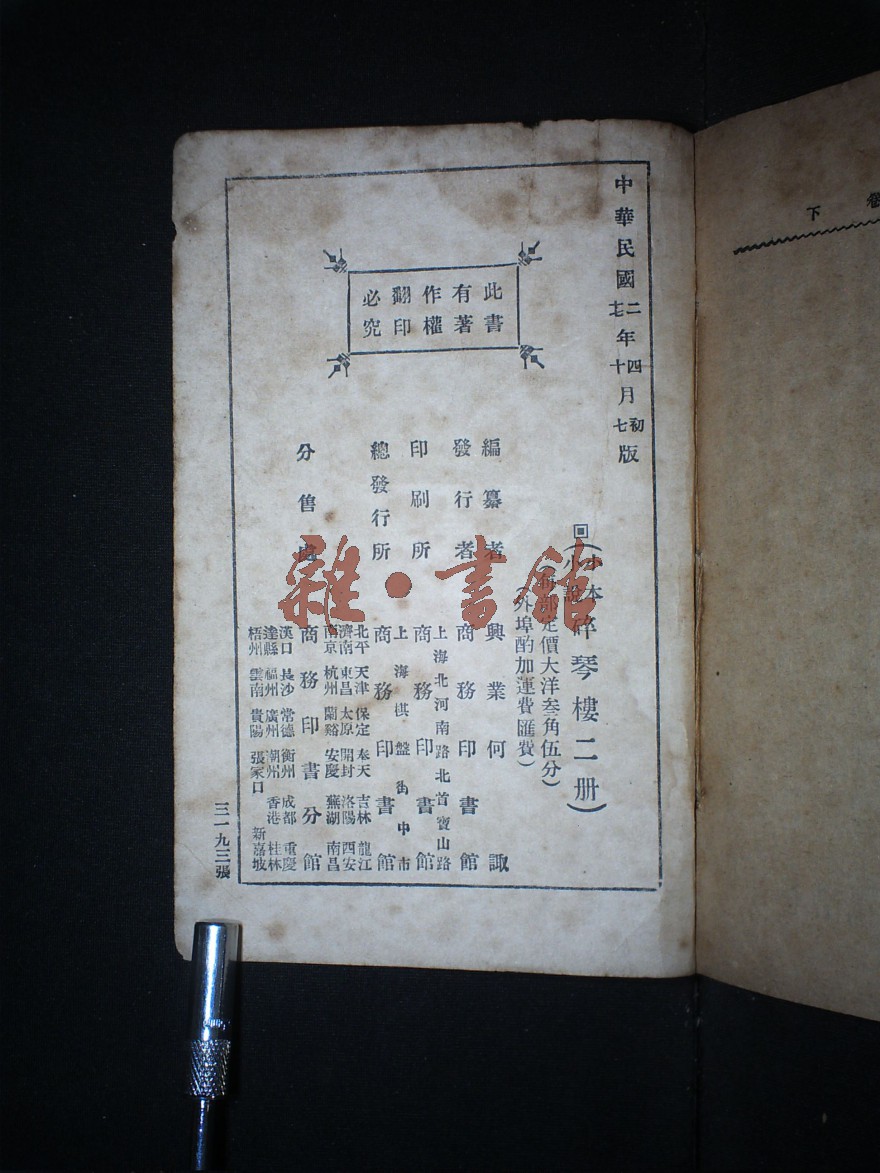 卷下
中華民國二年四月初版
十七年十月七版
此書
有著
作權
翻印
必究
回(小本小說碎琴樓二册)
(每部定價大洋叁角伍分)
(外埠酌加運費匯費)
編纂者 興業何諏
發行者 商務印書館
上海北河南路北首寶山路
印刷所 商務印書館
上海棋盤街中市
總發行所 商務印書館
北平 天津 保定 奉天 吉林 龍江
濟南 東昌 太原 開封 洛陽 西安
南京 杭州 蘭谿 安慶 蕪湖 南昌
分售處 商務印書分館
漢口 長沙 常德 衡州 成都 重慶
達縣 福州 廣州 潮州 香港 桂林
梧州 雲南 貴陽 張家口 新嘉坡
三一九三張
雜·書館